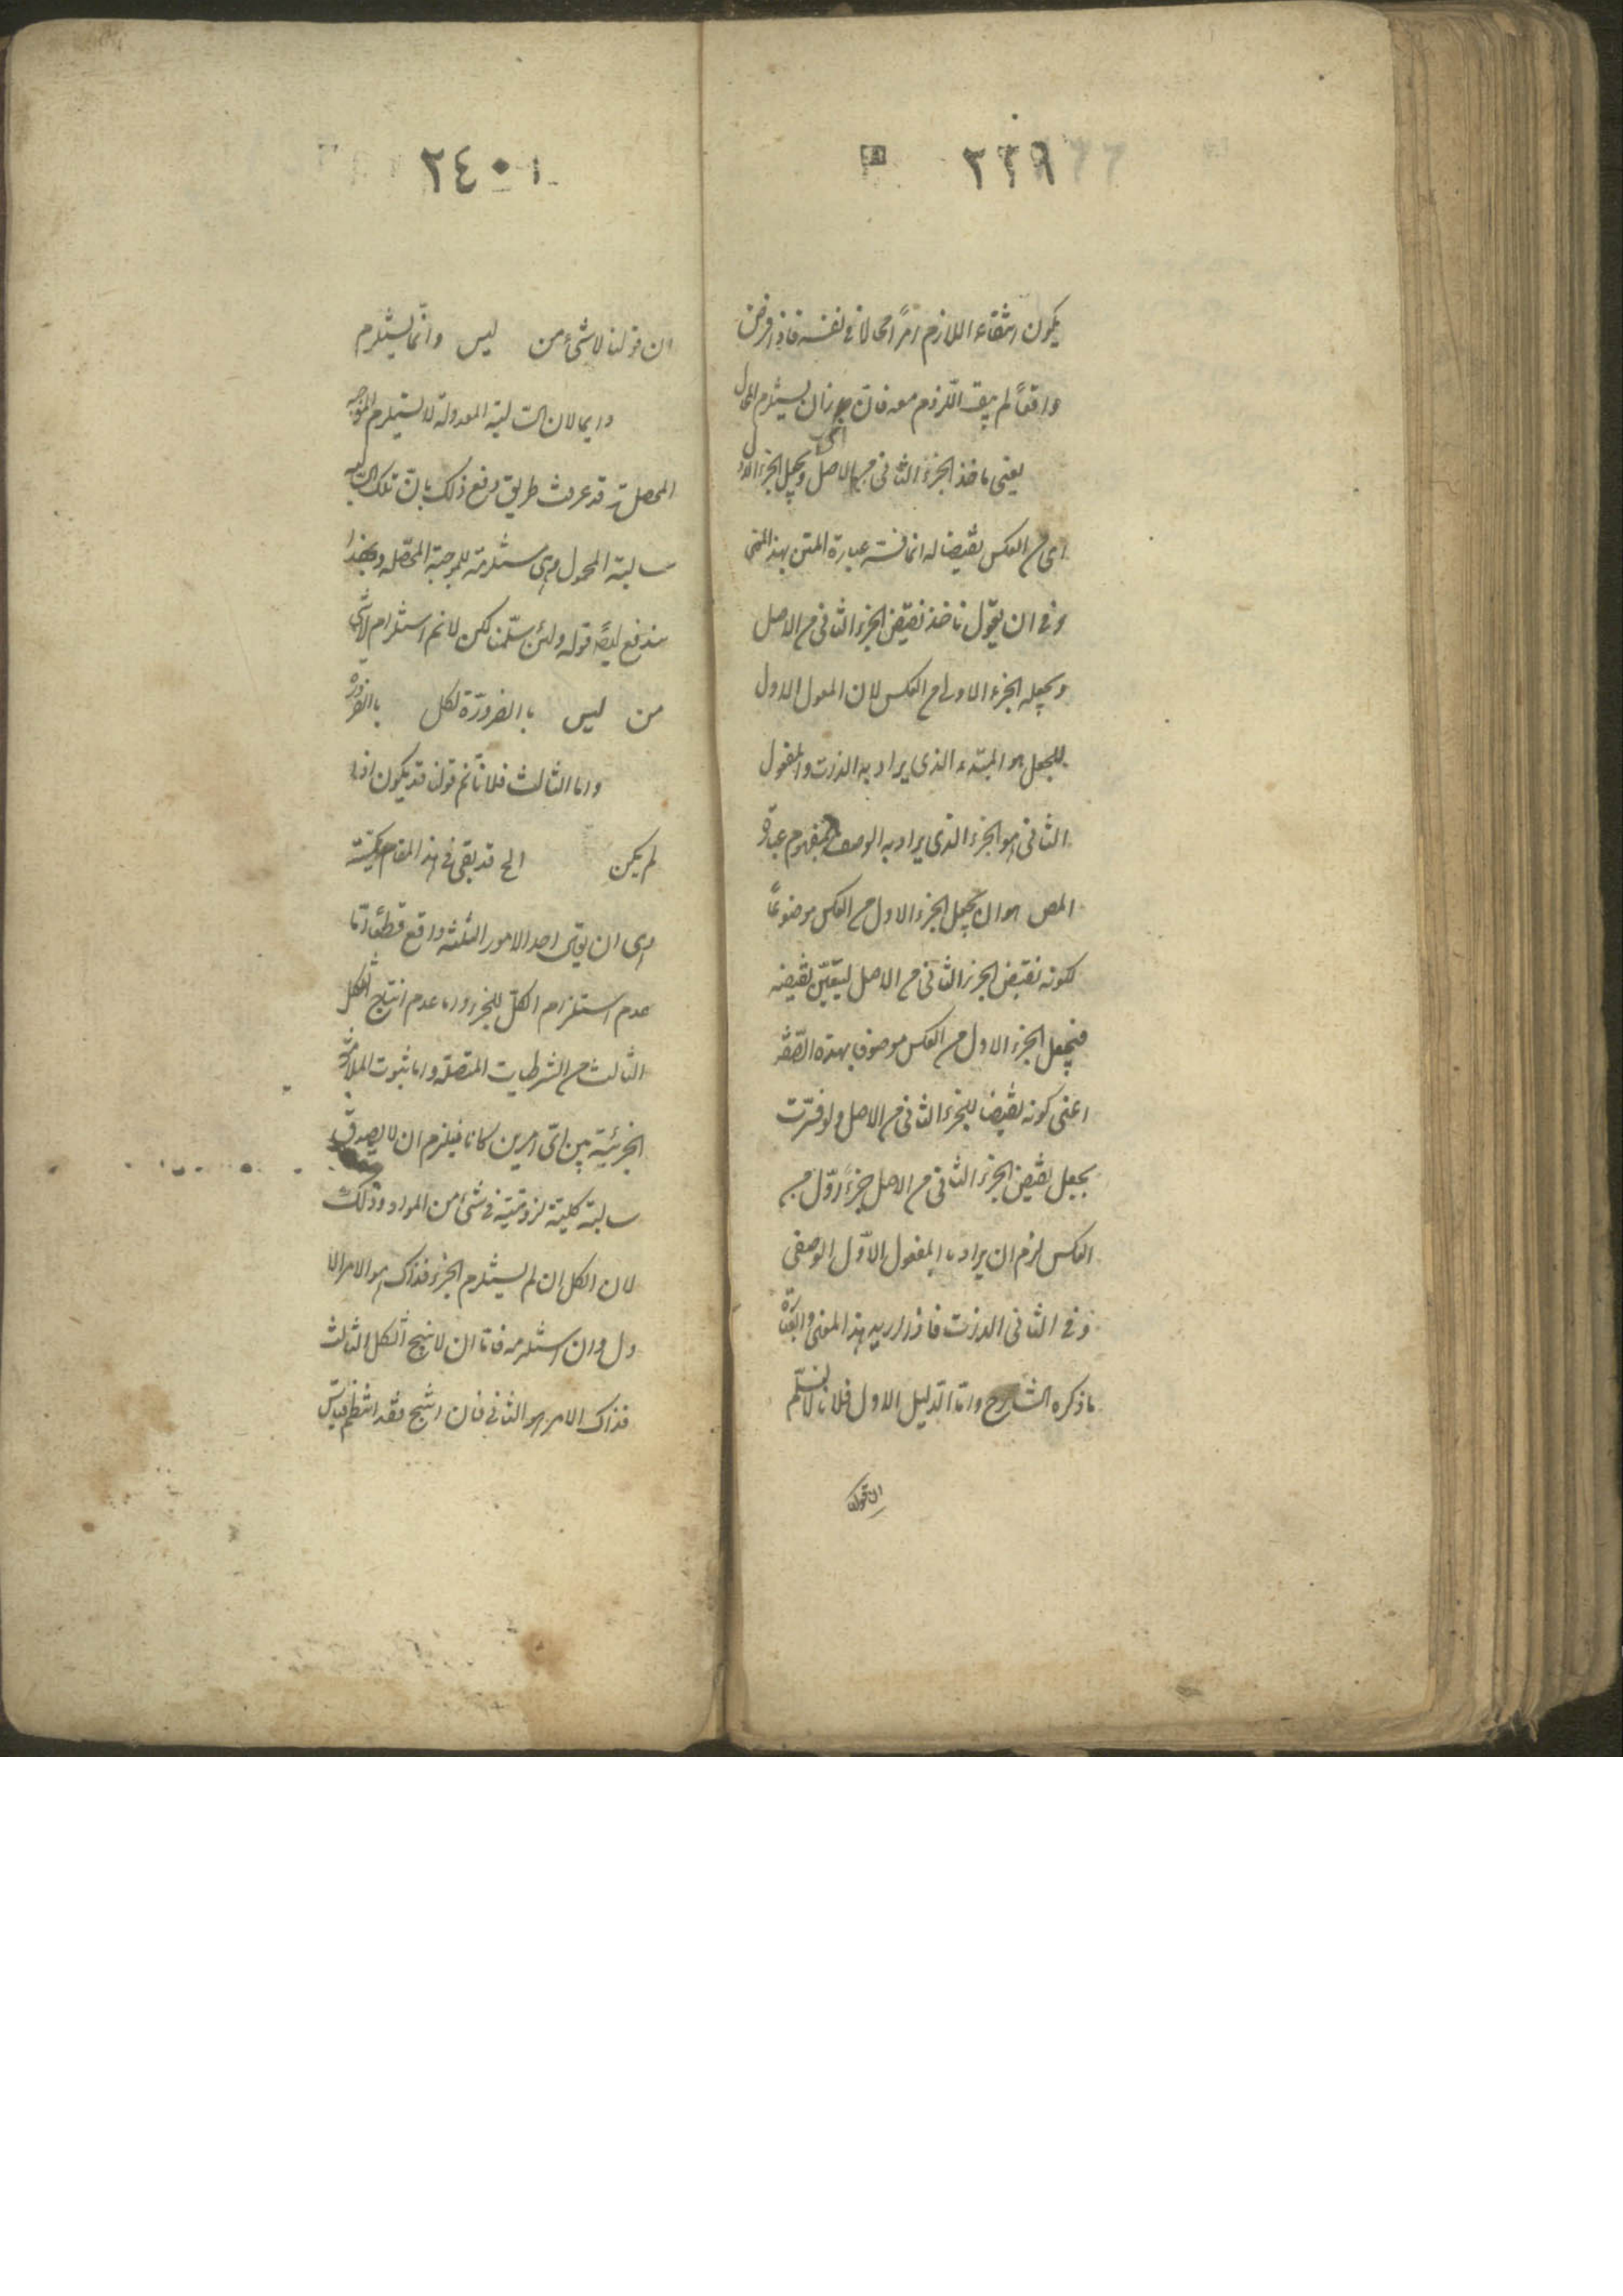 ٢٣٩
يكون انتفاء اللازم امرًا محالا فى نفسه فاذا فرض
واقعًا لم يبق اللزوم معه فان جاز ان يستلزم المحال المحال
يعنى ناخذ الجزء الثانى من الاصل ويجعل الجزء الاول
اى من العكس نقيضا له انما فسر عبارة المتن بهذا المعنى
وفى ان يقول ناخذ نقيض الجزء الثانى من الاصل
ويجعله الجزء الاول من العكس لان المفعول الاول
للجعل هو المبتدء الذى يراد به الذات والمفعول
الثانى هو الجزء الذى يراد به الوصف فمفهوم عبارة
المص هو ان يجعل الجزء الاول من العكس موضوعًا
لكونه نقيض الجزء الثانى من الاصل ليتعيّن نقيضه
فيجعل الجزء الاول من العكس موصوف بهذه الصّفة
اعنى كونه نقيضا للجزء الثانى من الاصل ولو فسّرت
بجعل نقيض الجزء الثانى من الاصل جزءً اوّل من
العكس لزم ان يراد بالمفعول الاوّل الوصفى
وفى الثانى الذات فاذا اريد بهذا المعنى فالعبارة
ما ذكره الشارح وامّا الدليل الاول فلانا لا نسلّم
ان قولنا
٢٤٠
ان قولنا لا شىء من ليس وانّما يستلزم
دايما لان السالبة المعدولة لا يستلزم الموجبة
المحصلة قد عرفت طريق دفع ذلك بانّ تلك السالبة
سالبة المحمول وهى مستلزمة للموجبة المحصّله وبهذا
يندفع ايضًا قوله ولئن سلّمنا لكن لانم استلزام لا شئ
من ليس بالضرورة لكل بالضرورة
واما الثالث فلانّا نم قولنا قد يكون اذا
لم يكن الخ قد بقى فى هذا المقام
وهى ان يقال احد الامور الثلثه واقع قطعًا امّا
عدم استلزام الكلّ للجزء واما عدم انتاج الشكل
الثالث من الشرطيات المتصلة واما ثبوت الملازمة
الجزئيّة بين اىّ امرين كانا فيلزم ان لا يصدق
سالبة كلية لزوميّة فى شىء من المواد وذلك
لان الكل ان لم يستلزم الجزء فذاك هو الامر الا
ول وان استلزمه فامّا ان لا ينتج الشكل الثالث
فذاك الامر هو الثانى فان انتج فقد انتظم قياس